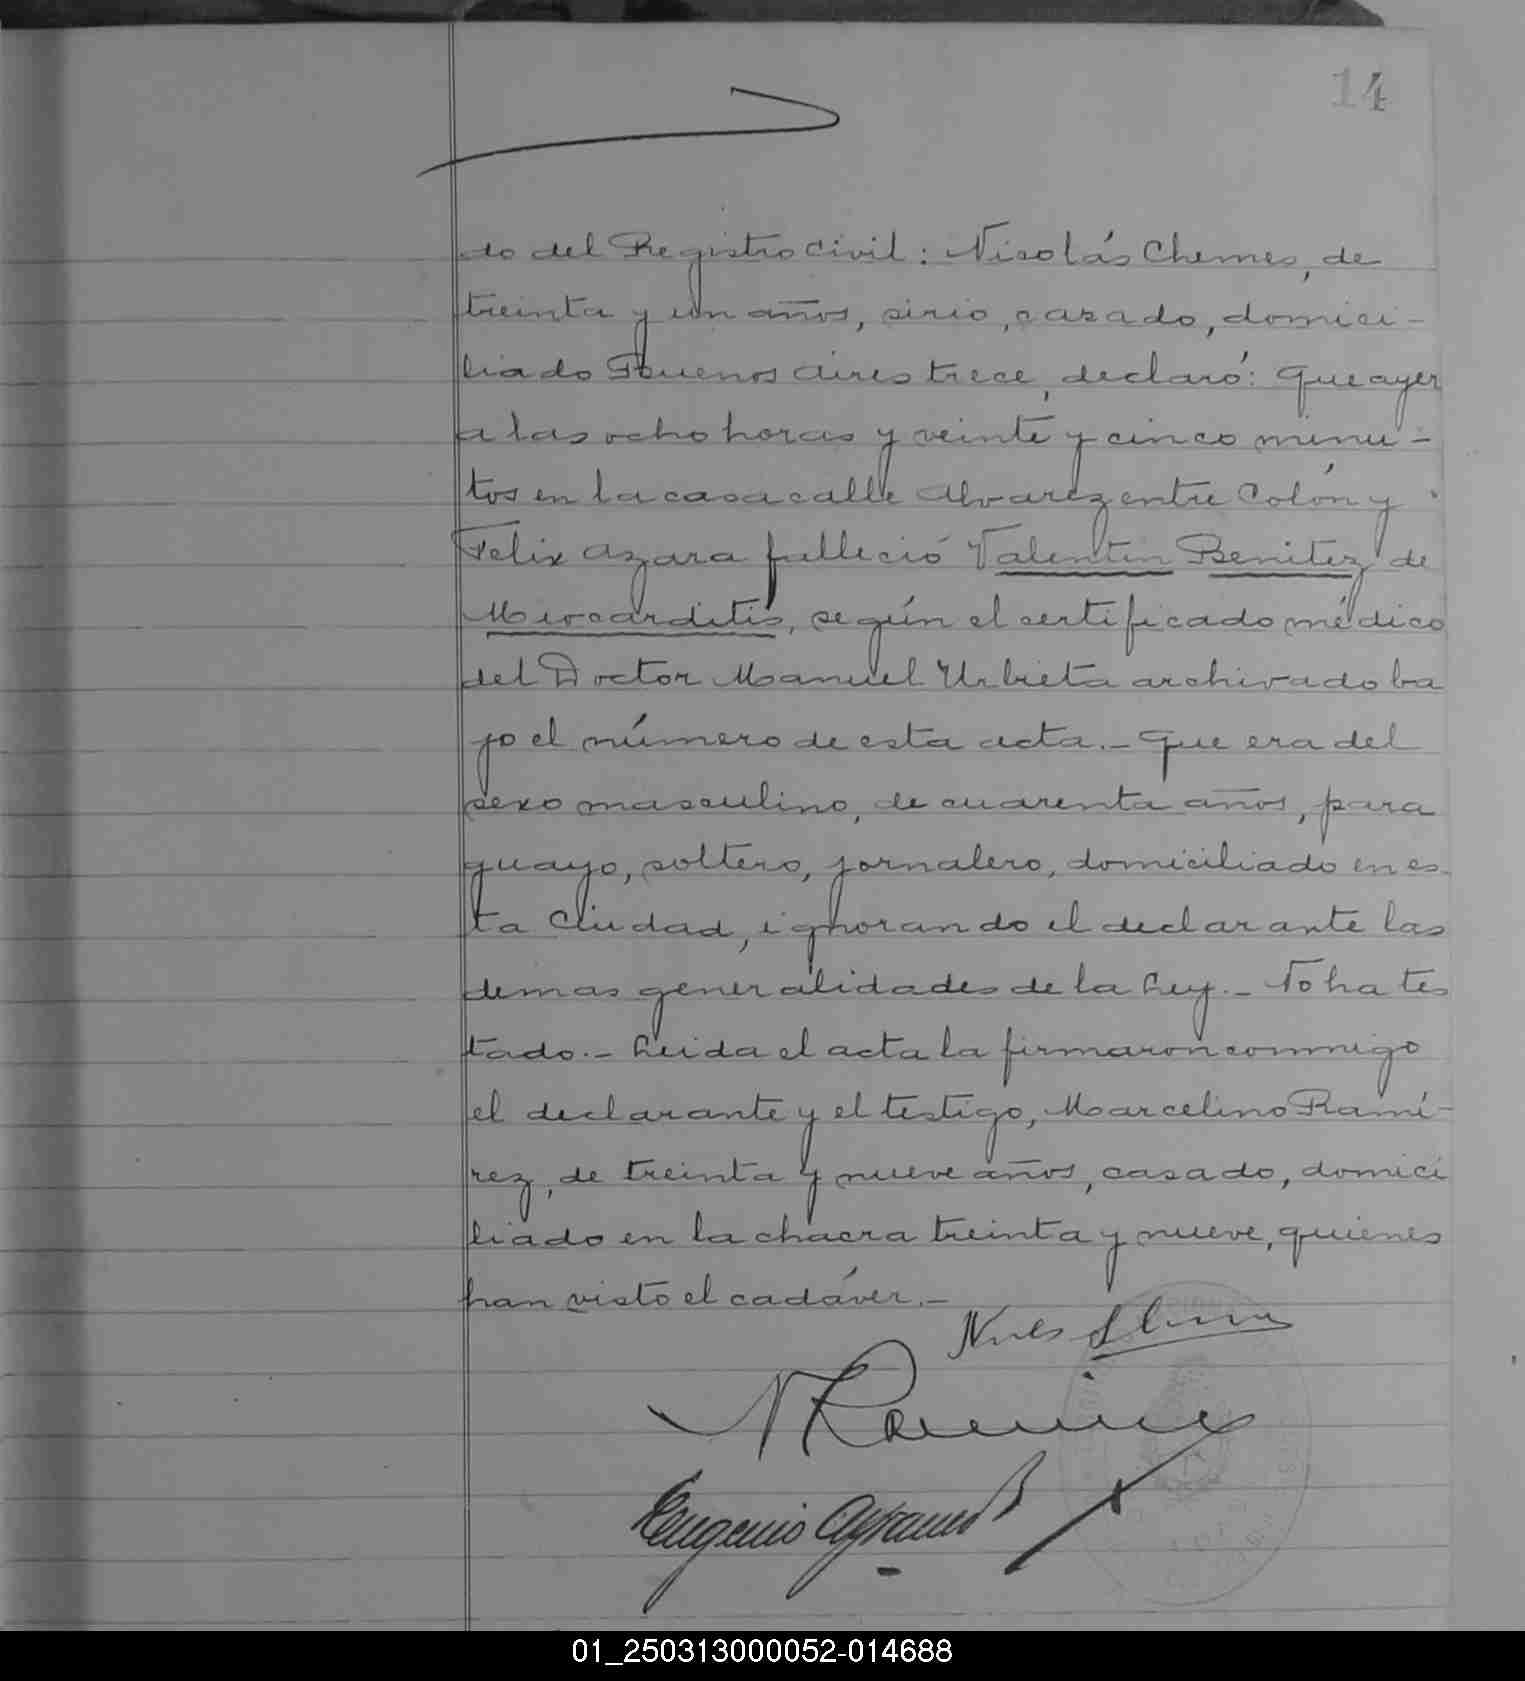 14
do del Registro Civil: Nicolás Chemes, de
treinta y un años, sirio, casado, domici-
liado Buenos Aires trece, declaró: Que ayer
a las ocho horas y veinte y cinco minu-
tos en la casa calle Alvarez entre Colón y
Felix Azara falleció Valentin Benitez de
Miocarditis, según el certificado médico
del Doctor Manuel Urbieta archivado ba
jo el número de esta acta.- Que era del
sexo masculino, de cuarenta años, para
guayo, soltero, jornalero, domiciliado en es-
ta Ciudad, ignorando el declarante las
demas generalidades de la Ley.- No ha tes
tado.- Leida el acta la firmaron conmigo
el declarante y el testigo, Marcelino Ramí-
rez, de treinta y nueve años, casado, domici
liado en la chacra treinta y nueve, quienes
han visto el cadáver.-
Eugenio
01_250313000052-014688